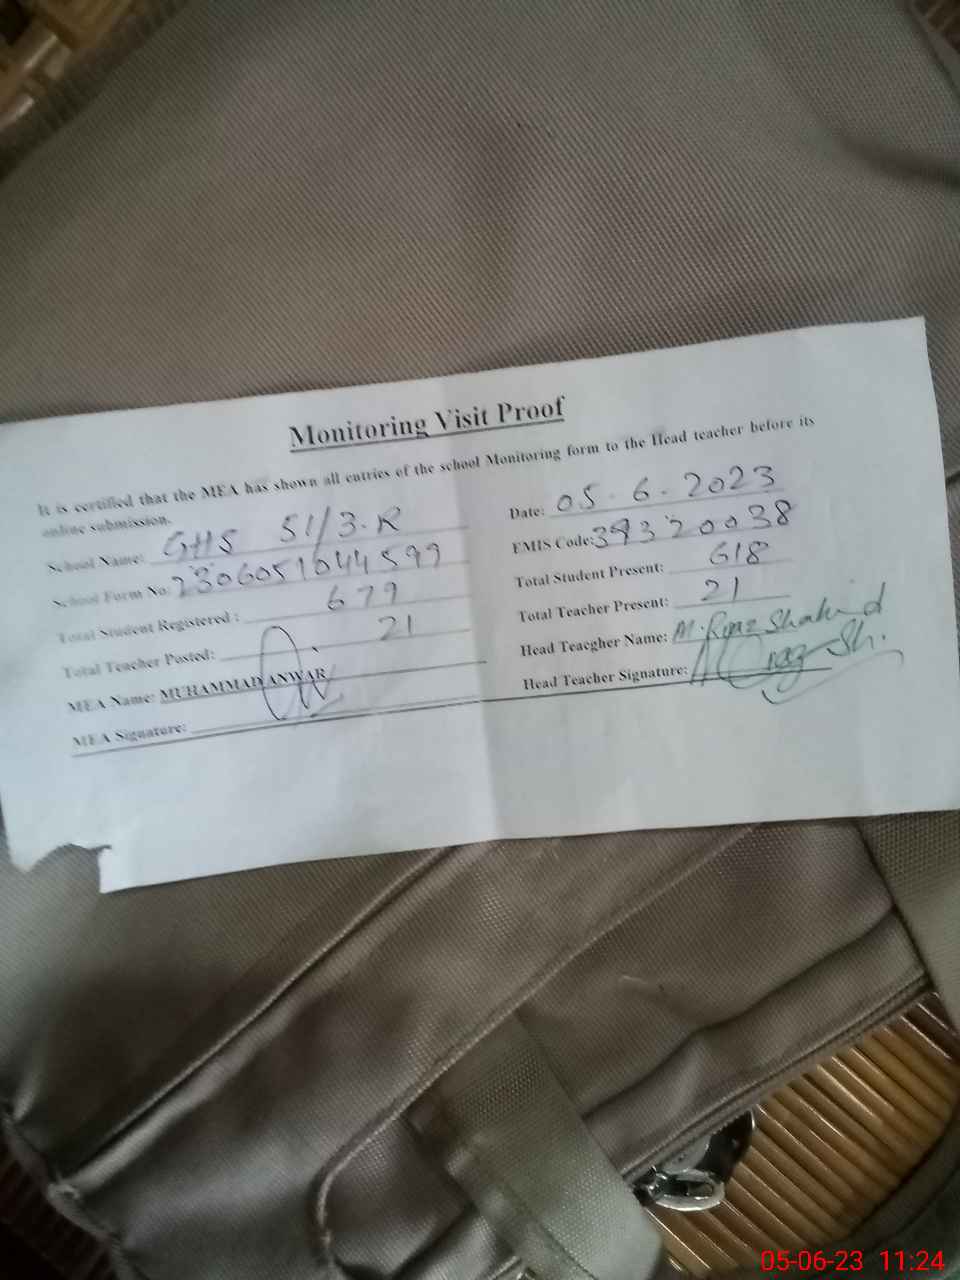 Monitoring Visit Proof
It is certified that the MEA has shown all entries of the school Monitoring form to the Head teacher before its
online submission.
School Name: GHS 51/3.R
Date: 05.6.2023
School Form No: 2306051044599
EMIS Code: 39320038
Total Student Registered : 679
Total Student Present: 618
Total Teacher Posted: 21
Total Teacher Present: 21
MEA Name: MUHAMMAD ANWAR
Head Teacgher Name: M. Riaz Shahid
MEA Signature:
Head Teacher Signature:
05-06-23 11:24